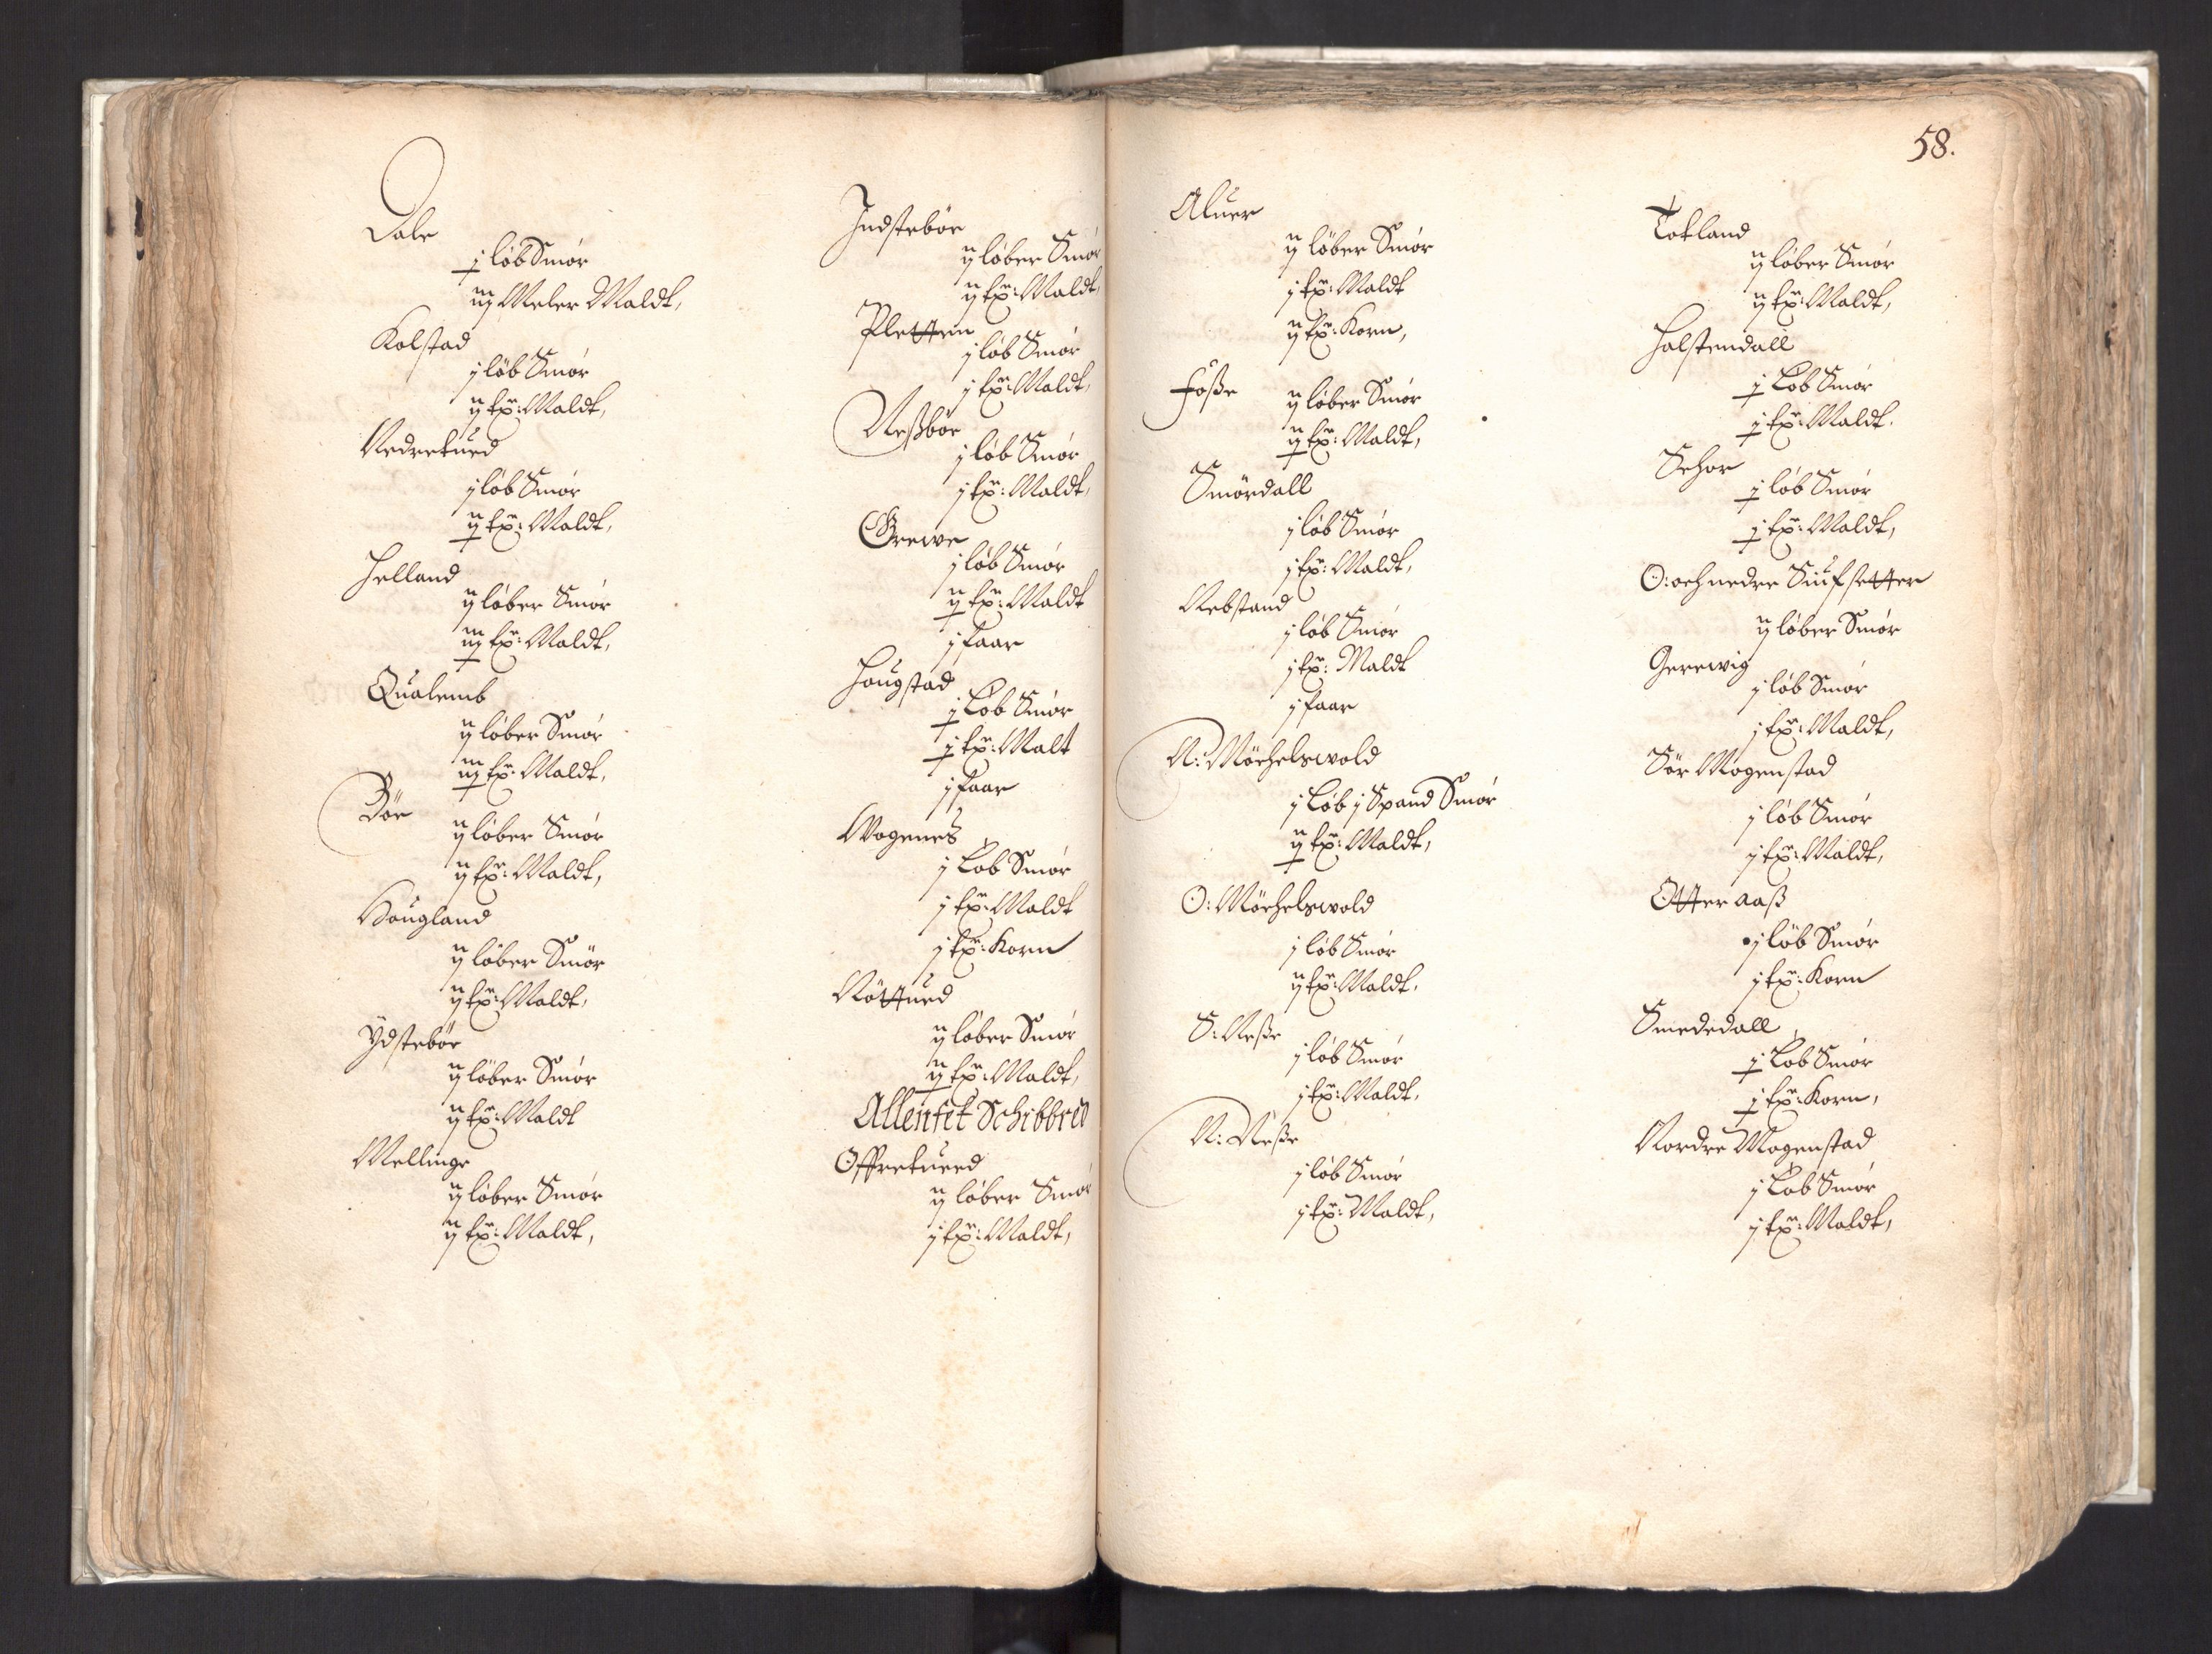 Dale
j løb Smør
iij Meler Maldt,
Kolstad
j løb Smør
ij tp: Maldt,
Nedretued
j løb Smør
ij tp: Maldt,
Helland
ij løber Smør
iij tp: Maldt,
Qualemb
ij løber Smør
iij tp: Maldt,
Böe
ij løber Smør
ij tp: Maldt,
Hougland
ij løber Smør
ij tp: Maldt,
Ydstebøe
ij løber Smør
ij tp: Maldt
Mellinge
ij løber Smør
ij tp: Maldt,
Indstebøe
ij løber Smør
ij tp: Maldt,
Pletten
j løb Smør
j tp: Maldt,
Neßbøe
j løb Smør
j tp: Maldt,
Grewe
j løb Smør
ij tp: Maldt
j faar
Hougstad
j Løb Smør
j tp: Malt
j faar
Wogenes
j Løb Smør
j tp: Maldt
j tp: Korn
Nöttued
ij løber Smør
ij tp: Maldt,
Allenfit Schibbred
Offretueed
ij løber Smør
j tp: Maldt,
58.
Aluer
ij løber Smør
j tp: Maldt
ij tp: Korn,
Foße
ij løber Smør
ij tp: Maldt,
Smördall
j løb Smør
j tp: Maldt,
Rebstand
j løb Smør
j tp: Maldt
j faar
N: Möchelswold
j Løb j Spand Smør
ij tp: Maldt,
O: Möchelswold
j løb Smør
ij tp: Maldt.
S: Neße
j løb Smør
j tp: Maldt.
N: Neße
j løb Smør
j tp: Maldt,
Tokland
ij løber Smør
ij tp: Maldt,
Halstendall
j Løb Smør
j tp: Maldt.
Schor
j løb Smør
j tp: Maldt,
O: och nedre Siufsetter
ij løber Smør
Gerewig
j løb Smør
j tp: Maldt,
Sør Mogenstad
j løb Smør
j tp: Maldt,
Otter aaß
j løb Smør
j tp: Korn
Smededall
j Løb Smør
j tp: Korn,
Nordre Mogenstad
j Løb Smør
j tp: Maldt,